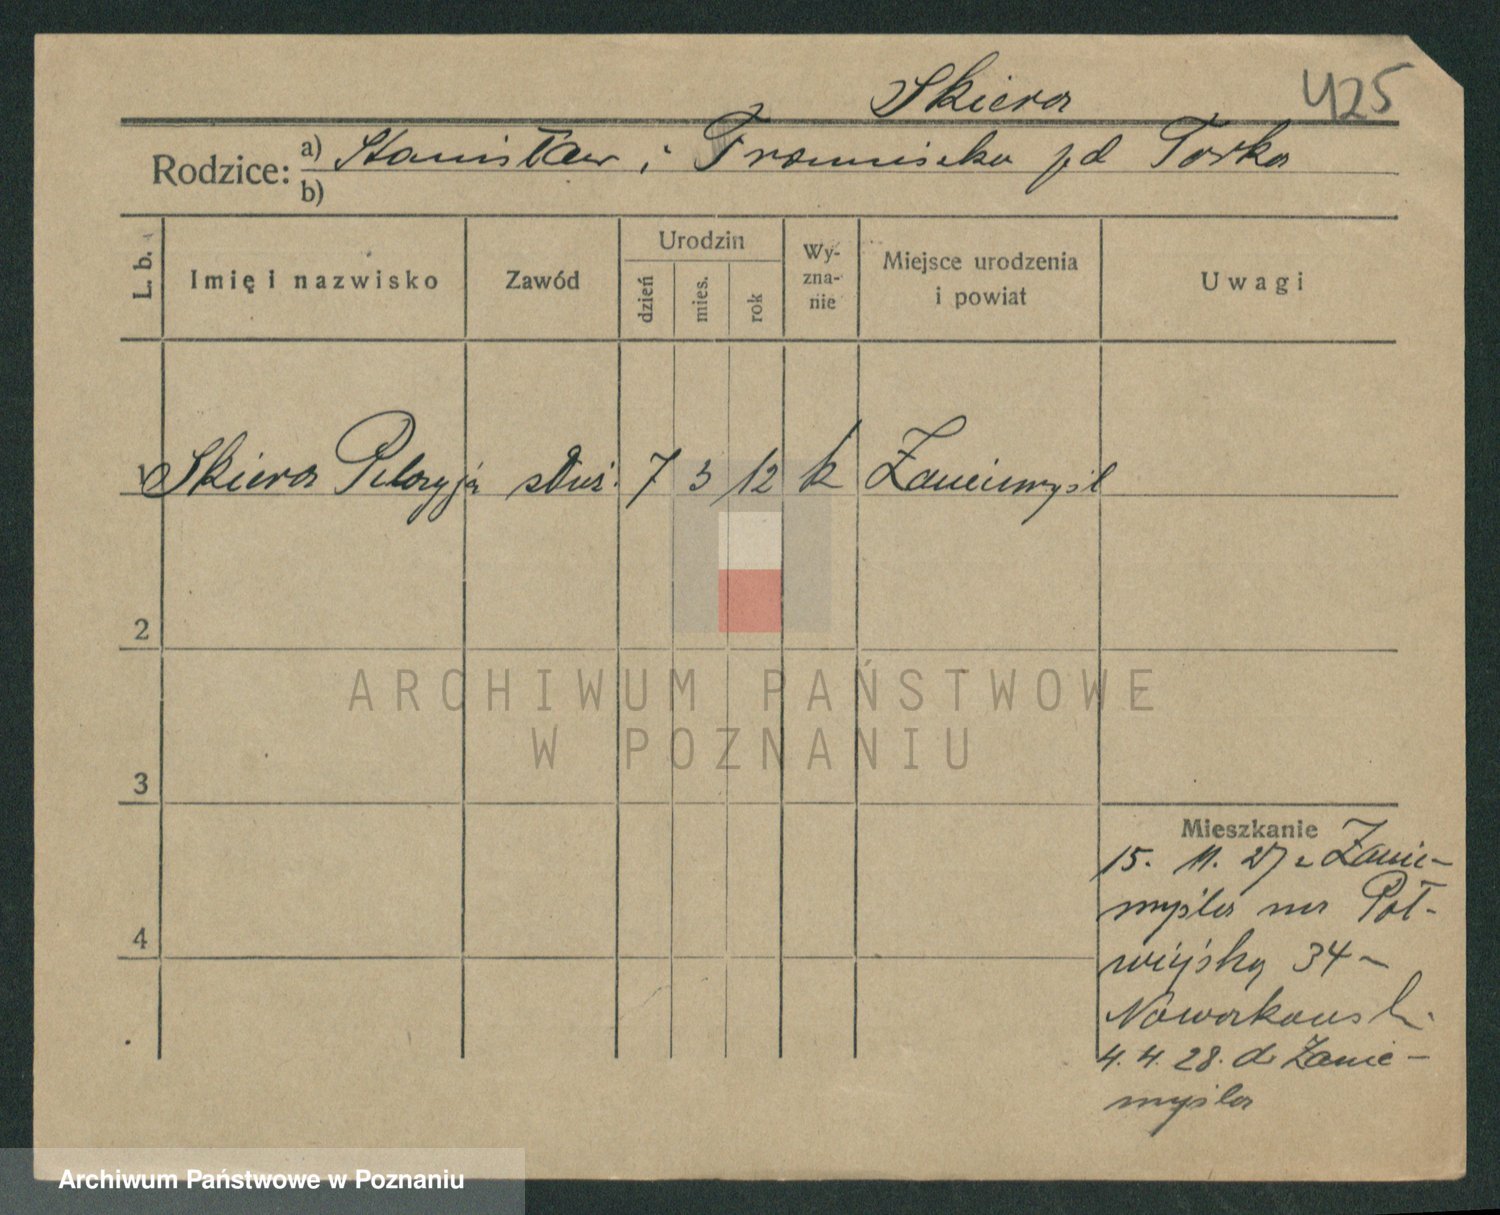 Skiera 425
Rodzice: a) Stanisław i Franciszka pd Torka
b)
L. b.
Imię i nazwisko
Zawód
Urodzin
dzień
mies.
rok
Wy-
zna-
nie
Miejsce urodzenia
i powiat
Uwagi
1 Skiera Pelagja służ. 7 3 12 k Zaniemyśl
2
ARCHIWUM PAŃSTWOWE
W POZNANIU
3
4
Mieszkanie
15. 11. 27 z Zanie-
myśla na Pół-
wiejską 34 -
Nowakowski
4. 4. 28. do Zanie-
myśla
Archiwum Państwowe w Poznaniu